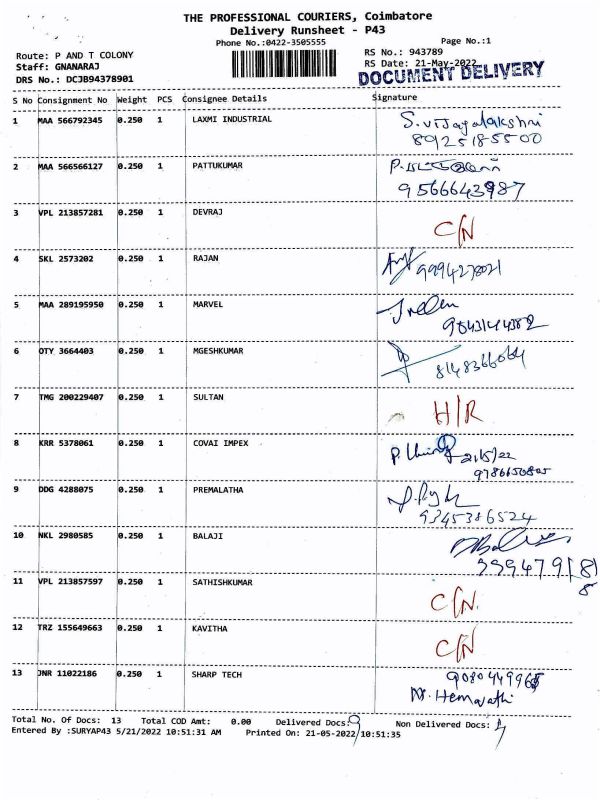 THE PROFESSIONAL COURIERS, Coimbatore
Delivery Runsheet - P43
Phone No.:0422-3505555 Page No.:1
Route: P AND T COLONY RS No.: 943789
Staff: GNANARAJ RS Date: 21-May-2022
DRS No.: DCJB94378901 DOCUMENT DELIVERY
S No Consignment No Weight PCS Consignee Details Signature
1 MAA 566792345 0.250 1 LAXMI INDUSTRIAL S.vijayalakshni
8925185500
2 MAA 566566127 0.250 1 PATTUKUMAR
9566643987
3 VPL 213857281 0.250 1 DEVRAJ C/N
4 SKL 2573202 0.250 1 RAJAN 9994278021
5 MAA 289195950 0.250 1 MARVEL
6 OTY 3664403 0.250 1 MGESHKUMAR 8148366064
7 TMG 200229407 0.250 1 SULTAN H/R
8 KRR 5378061 0.250 1 COVAI IMPEX 21/5/22
9 DDG 4288075 0.250 1 PREMALATHA
9345386524
10 NKL 2980585 0.250 1 BALAJI
11 VPL 213857597 0.250 1 SATHISHKUMAR C/N.
12 TRZ 155649663 0.250 1 KAVITHA C/N
13 JNR 11022186 0.250 1 SHARP TECH
M. Hemavathi
Total No. Of Docs: 13 Total COD Amt: 0.00 Delivered Docs: 9 Non Delivered Docs: 4
Entered By :SURYAP43 5/21/2022 10:51:31 AM Printed On: 21-05-2022 10:51:35